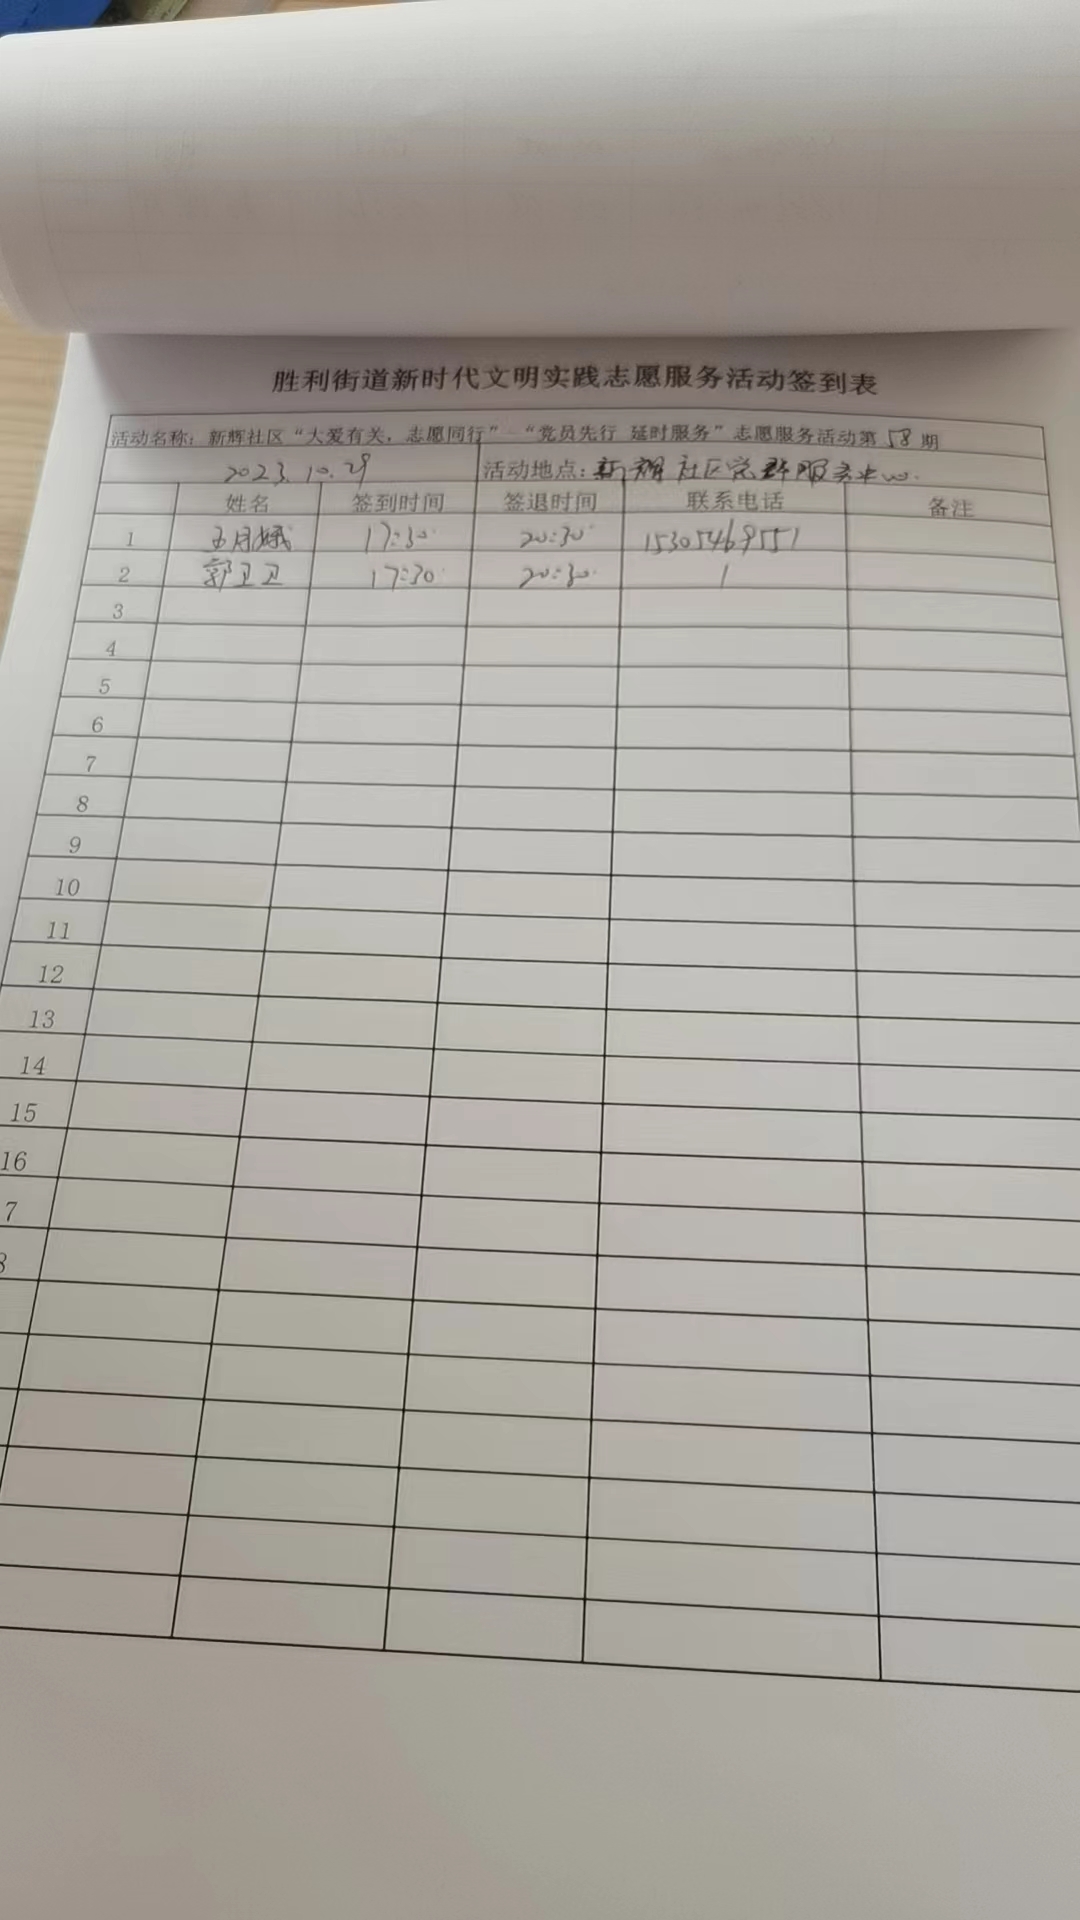 胜利街道新时代文明实践志愿服务活动签到表
活动名称：新辉社区“大爱有关，志愿同行”—“党员先行 延时服务”志愿服务活动第58期
2023.10.29 活动地点：新辉社区党群服务中心.
姓名 签到时间 签退时间 联系电话 备注
1 王月娥 17:30 20:30 15305469551
2 郭卫卫 17:30 20:30 /
3
4
5
6
7
8
9
10
11
12
13
14
15
16
7
8